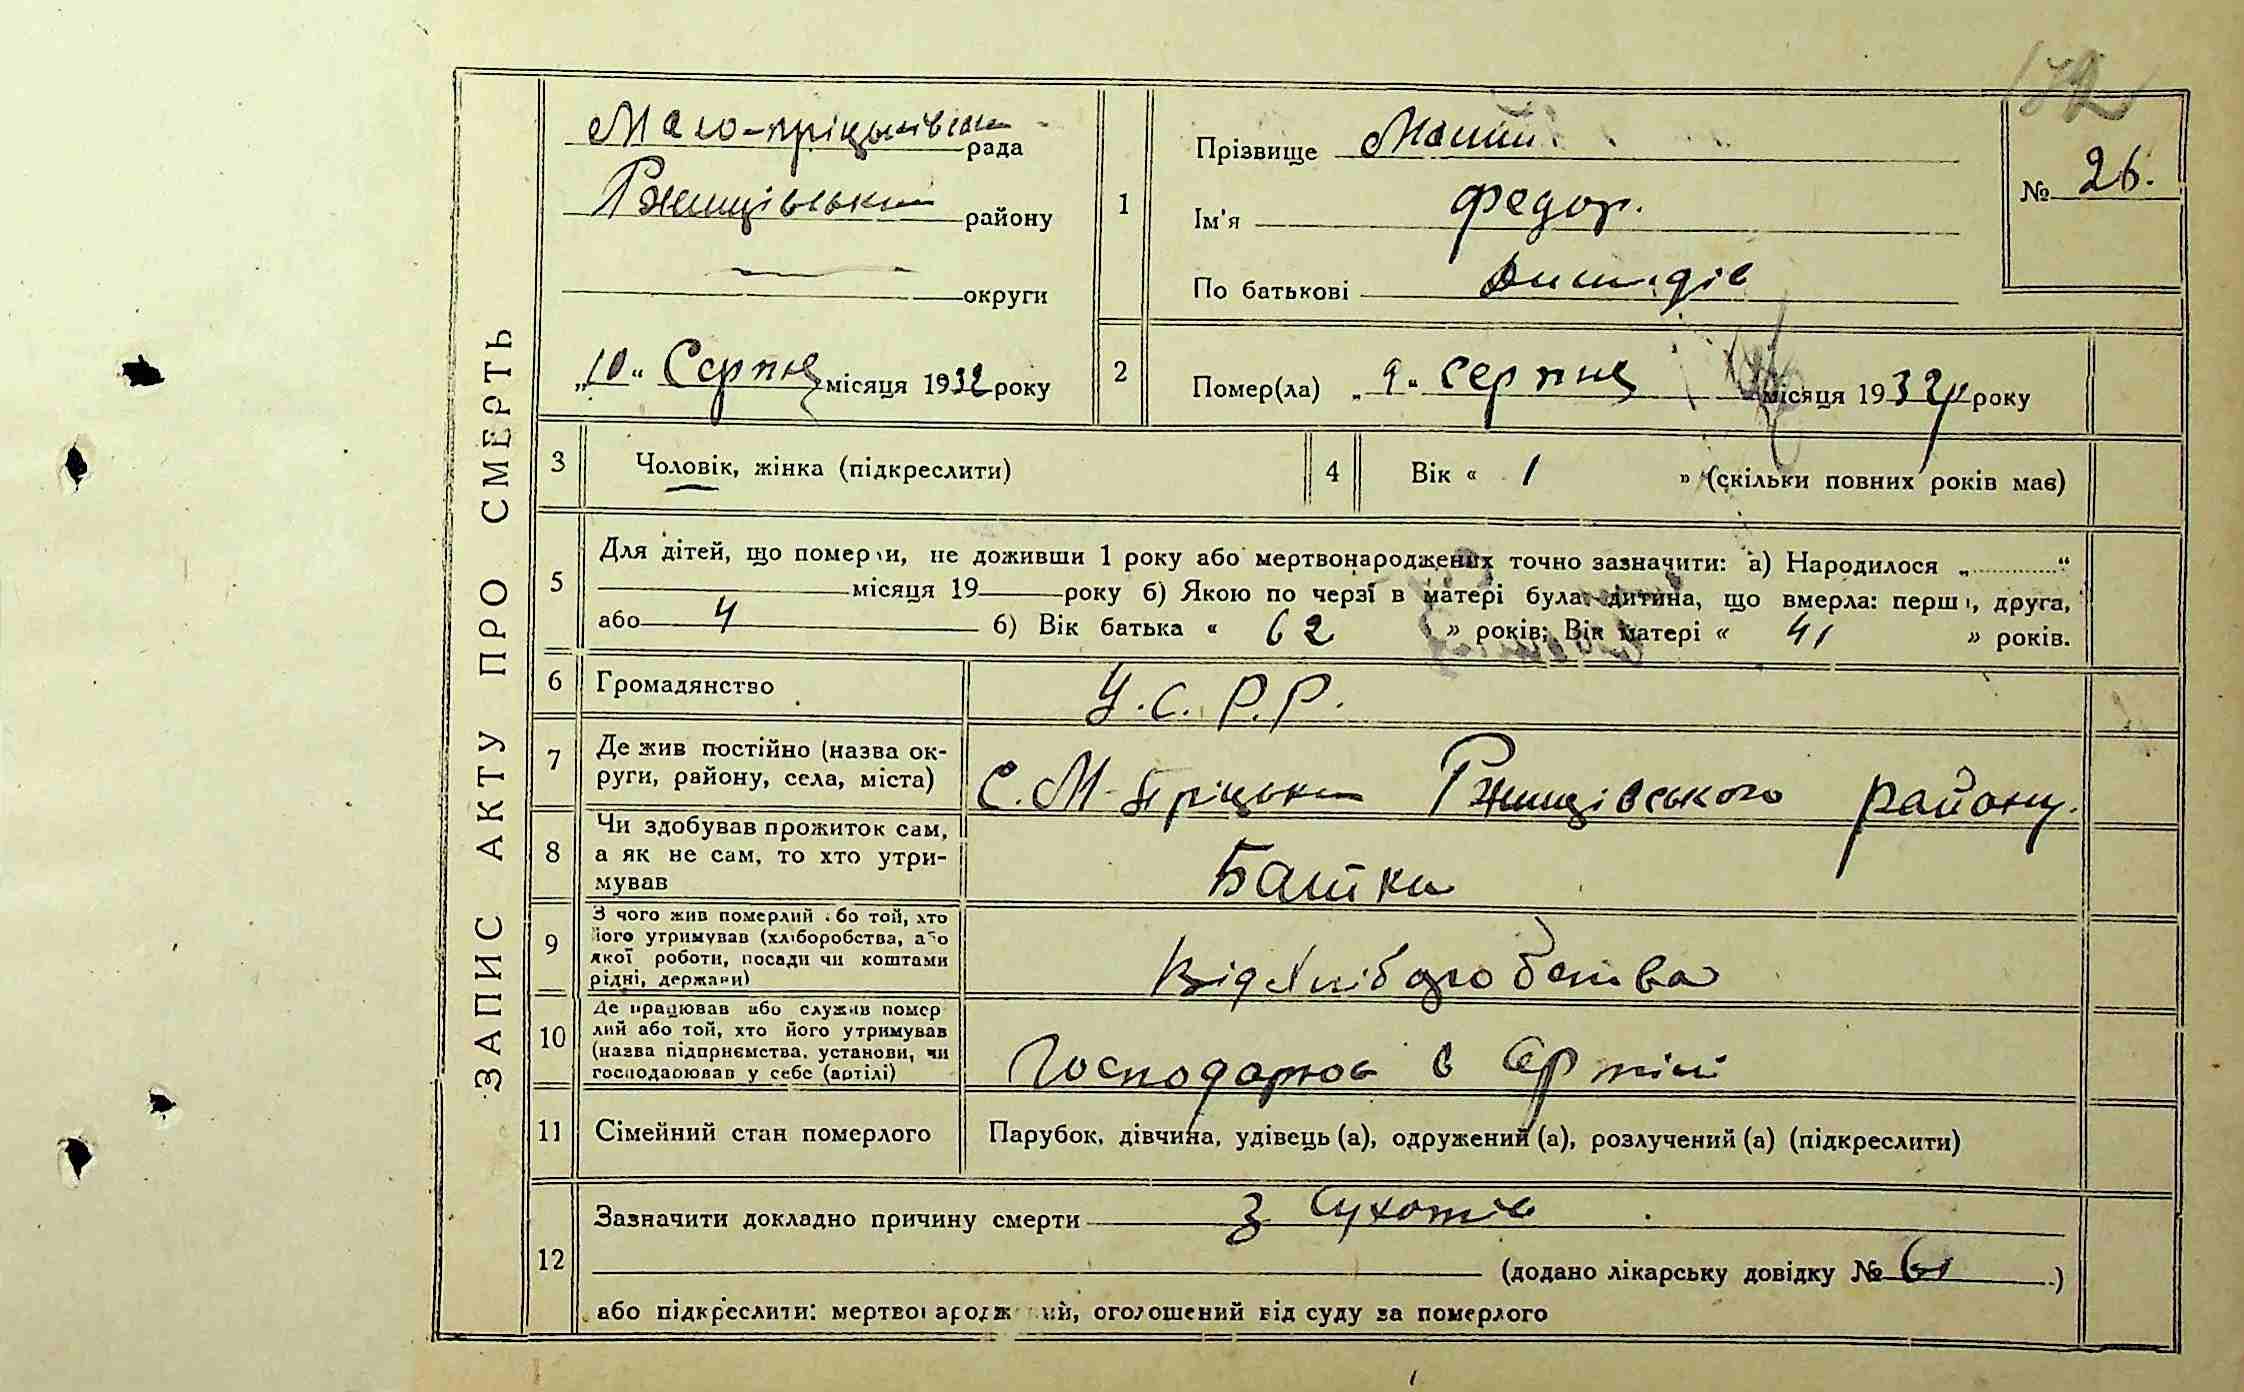 ЗАПИС АКТУ ПРО СМЕРТЬ
Мало-пріцьківська рада
Ржищівський району
округи
„10“ Серпня місяця 1932 року
1
Прізвище
Ім'я Федор.
По батькові
№ 26.
2
Помер(ла) „9“ серпня місяця 1932 року
3
Чоловік, жінка (підкреслити)
4
Вік « 1 » (скільки повних років має)
5
Для дітей, що померли, не доживши 1 року або мертвонароджених точно зазначити: а) Народилося „ “
місяця 19 року б) Якою по черзі в матері була дитина, що вмерла: перша, друга,
або 4 б) Вік батька « 62 » років; Вік матері « 41 » років.
6
Громадянство
У.С.Р.Р.
7
Де жив постійно (назва ок-
руги, району, села, міста)
С. М-Пріцьки Ржищівського району.
8
Чи здобував прожиток сам,
а як не сам, то хто утри-
мував
Батьки
9
З чого жив померлий або той, хто
його утримував (хліборобства, або
якої роботи, посади чи коштами
рідні, держави)
від хліборобства
10
Де працював або служив помер
лий або той, хто його утримував
(назва підприємства, установи, чи
господарював у себе (артілі)
Господарює в Артілі
11
Сімейний стан померлого
Парубок, дівчина, удівець (а), одружений (а), розлучений (а) (підкреслити)
12
Зазначити докладно причину смерти з Сухотів
(додано лікарську довідку № )
або підкреслити: мертвонароджений, оголошений від суду за померлого